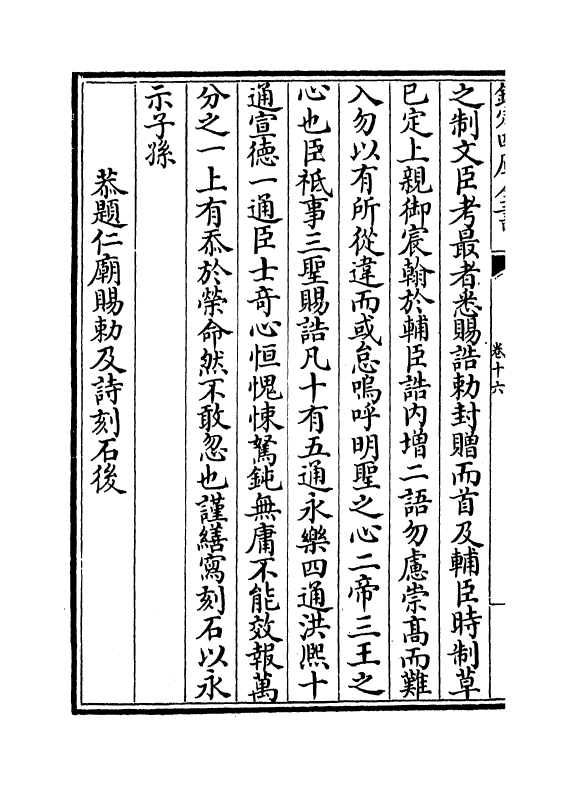 欽定四庫全書
卷十六
之制文臣考最者悉賜誥勅封贈而首及輔臣時制草
已定上親御宸翰於輔臣誥内增二語勿慮崇髙而難
入勿以有所從違而或怠嗚呼明聖之心二帝三王之
心也臣祗事三聖賜誥凡十有五通永樂四通洪熈十
通宣德一通臣士奇心恒愧悚駑鈍無庸不能效報萬
分之一上有忝於榮命然不敢忽也謹繕寫刻石以永
示子孫
恭題仁廟賜勅及詩刻石後